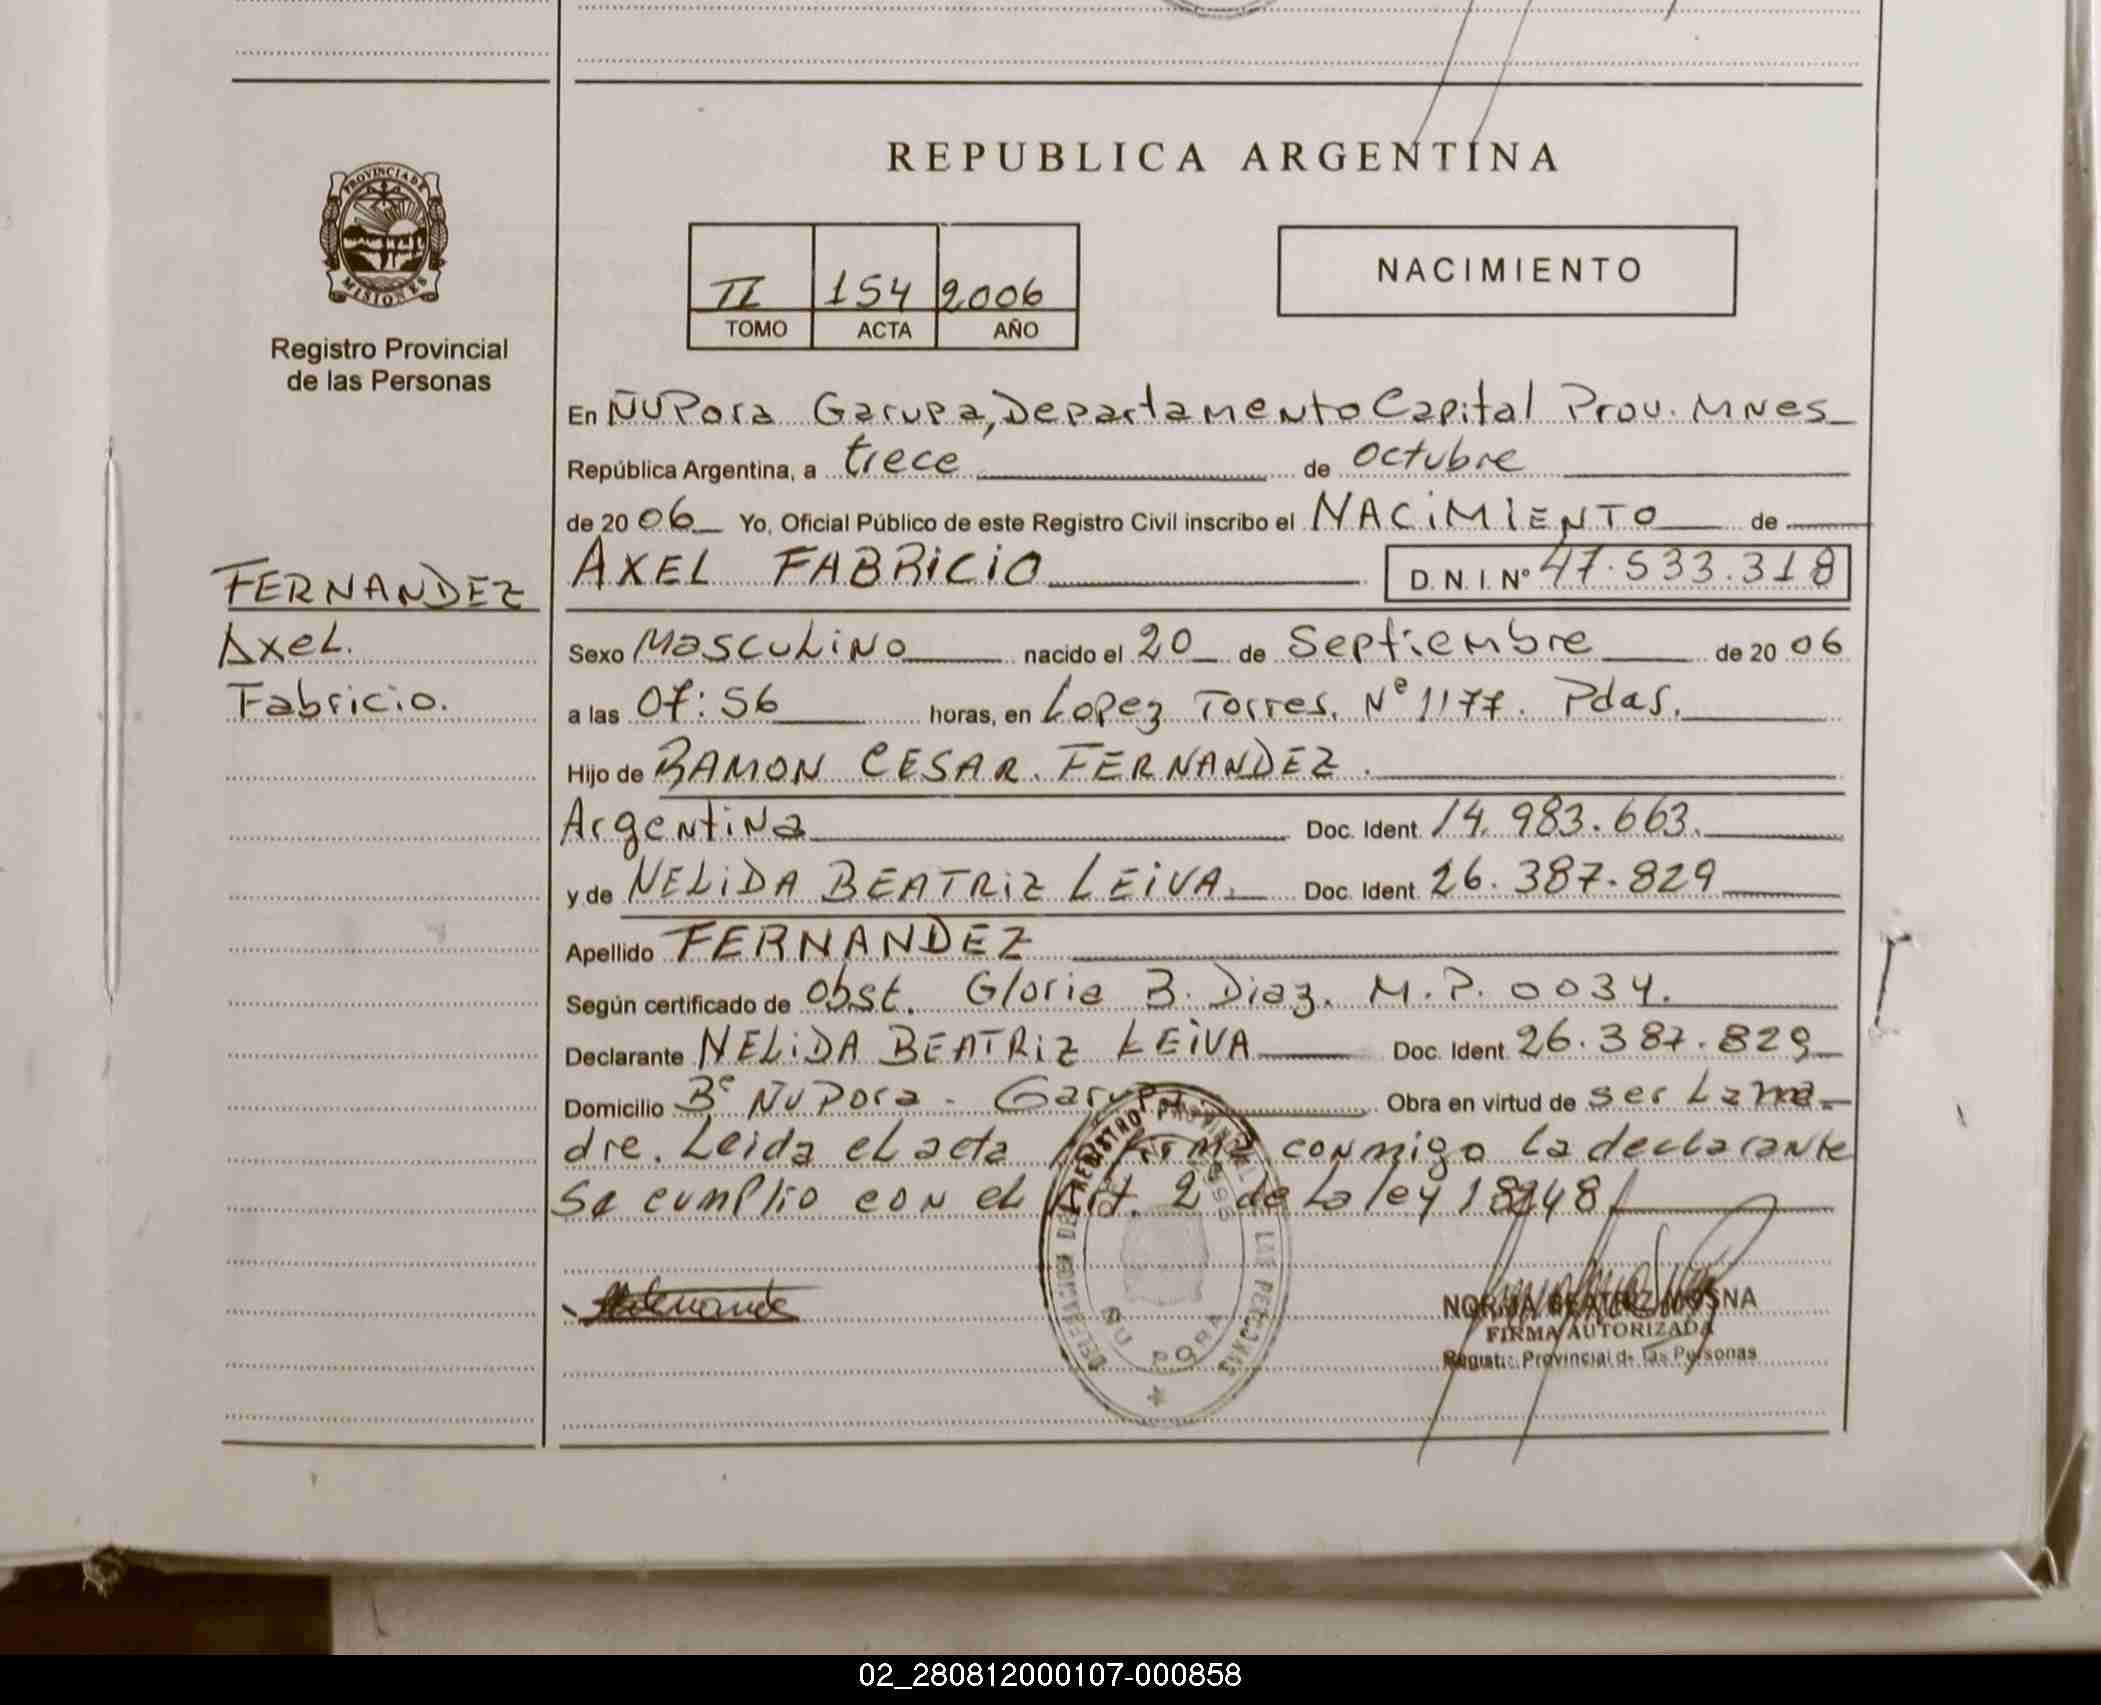 PROVINCIA DE
MISIONES
Registro Provincial
de las Personas
FERNANDEZ
Axel.
Fabricio.
REPUBLICA ARGENTINA
II 154 2006
TOMO ACTA AÑO
NACIMIENTO
En Ñu Pora Garupa, Departamento Capital Prov. Mnes
República Argentina, a trece de octubre
de 2006 Yo, Oficial Público de este Registro Civil inscribo el NACIMIENTO de
AXEL FABRICIO D. N. I. Nº 47.533.318
Sexo Masculino nacido el 20 de Septiembre de 2006
a las 07:56 horas, en Lopez Torres. Nº 1177. Pdas.
Hijo de RAMON CESAR. FERNANDEZ.
Argentina Doc. Ident. 14.983.663.
y de NELIDA BEATRIZ LEIVA. Doc. Ident. 26.387.829
Apellido FERNANDEZ
Según certificado de obst. Gloria B. Diaz. M.P. 0034.
Declarante NELIDA BEATRIZ LEIVA Doc. Ident. 26.387.829
Domicilio Bº Ñu Pora - Garupa Obra en virtud de ser La ma-
dre. Leida el acta firma conmigo la declarante
Se cumplio con el Art. 2 de La ley 18248
DELEGACION DEL REGISTRO PROVINCIAL DE LAS PERSONAS
ÑU PORA
NORMA BEATRIZ MOSNA
FIRMA AUTORIZADA
Registro Provincial de las Personas
02_280812000107-000858